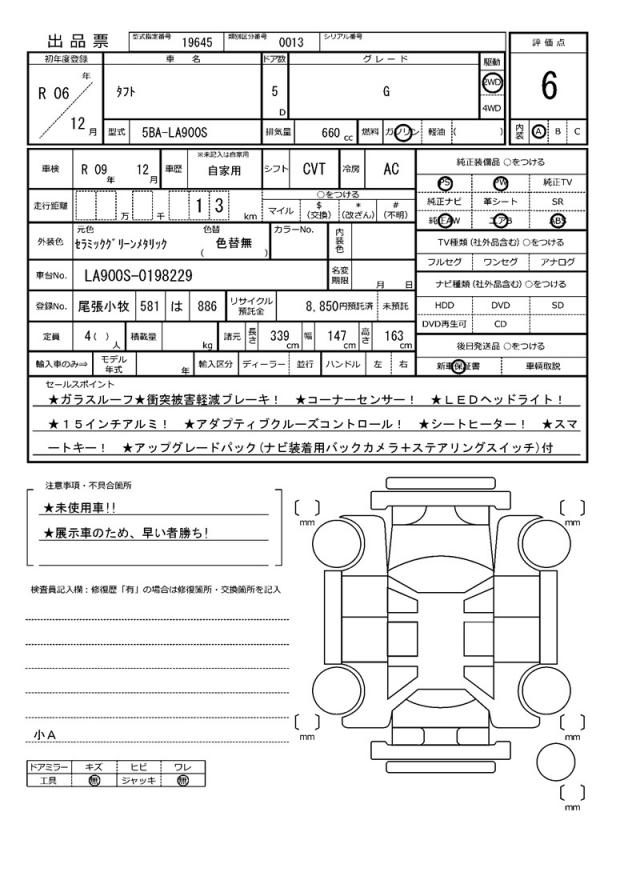 出品票 型式指定番号 19645 類別区分番号 0013 シリアル番号
初年度登録 車名 ドア数 グレード 駆動 評価点
R 06 年 12 月 タフト 5 D G 2WD 4WD 6
型式 5BA-LA900S 排気量 660 cc 燃料 ガソリン 軽油 ( ) 内装 A B C
車検 R 09 年 12 月 車歴 ※未記入は自家用 自家用 シフト CVT 冷房 AC 純正装備品 ○をつける
PS PW 純正TV
走行距離 万 千 1 3 km ○をつける マイル $ (交換) * (改ざん) # (不明) 純正ナビ 革シート SR
純正AW エアB ABS
外装色 元色 セラミックグリーンメタリック 色替 ( 色替無 ) カラーNo. 内装色 TV種類(社外品含む)○をつける
フルセグ ワンセグ アナログ
車台No. LA900S-0198229 名変期限 月 日 ナビ種類(社外品含む)○をつける
登録No. 尾張小牧 581 は 886 リサイクル預託金 8,850円預託済 未預託 HDD DVD SD
DVD再生可 CD
定員 4( ) 人 積載量 kg 諸元 長さ 339 cm 幅 147 cm 高さ 163 cm 後日発送品 ○をつける
輸入車のみ⇒ モデル年式 年 輸入区分 ディーラー 並行 ハンドル 左 右 新車保証書 車輌取説
セールスポイント
★ガラスルーフ★衝突被害軽減ブレーキ! ★コーナーセンサー! ★LEDヘッドライト!
★15インチアルミ! ★アダプティブクルーズコントロール! ★シートヒーター! ★スマ
ートキー! ★アップグレードパック(ナビ装着用バックカメラ+ステアリングスイッチ)付
注意事項・不具合箇所
★未使用車!!
★展示車のため、早い者勝ち!
検査員記入欄:修復歴「有」の場合は修復箇所・交換箇所を記入
小A
ドアミラー キズ ヒビ ワレ
工具 無 ジャッキ 無
mm
mm
mm
mm
mm